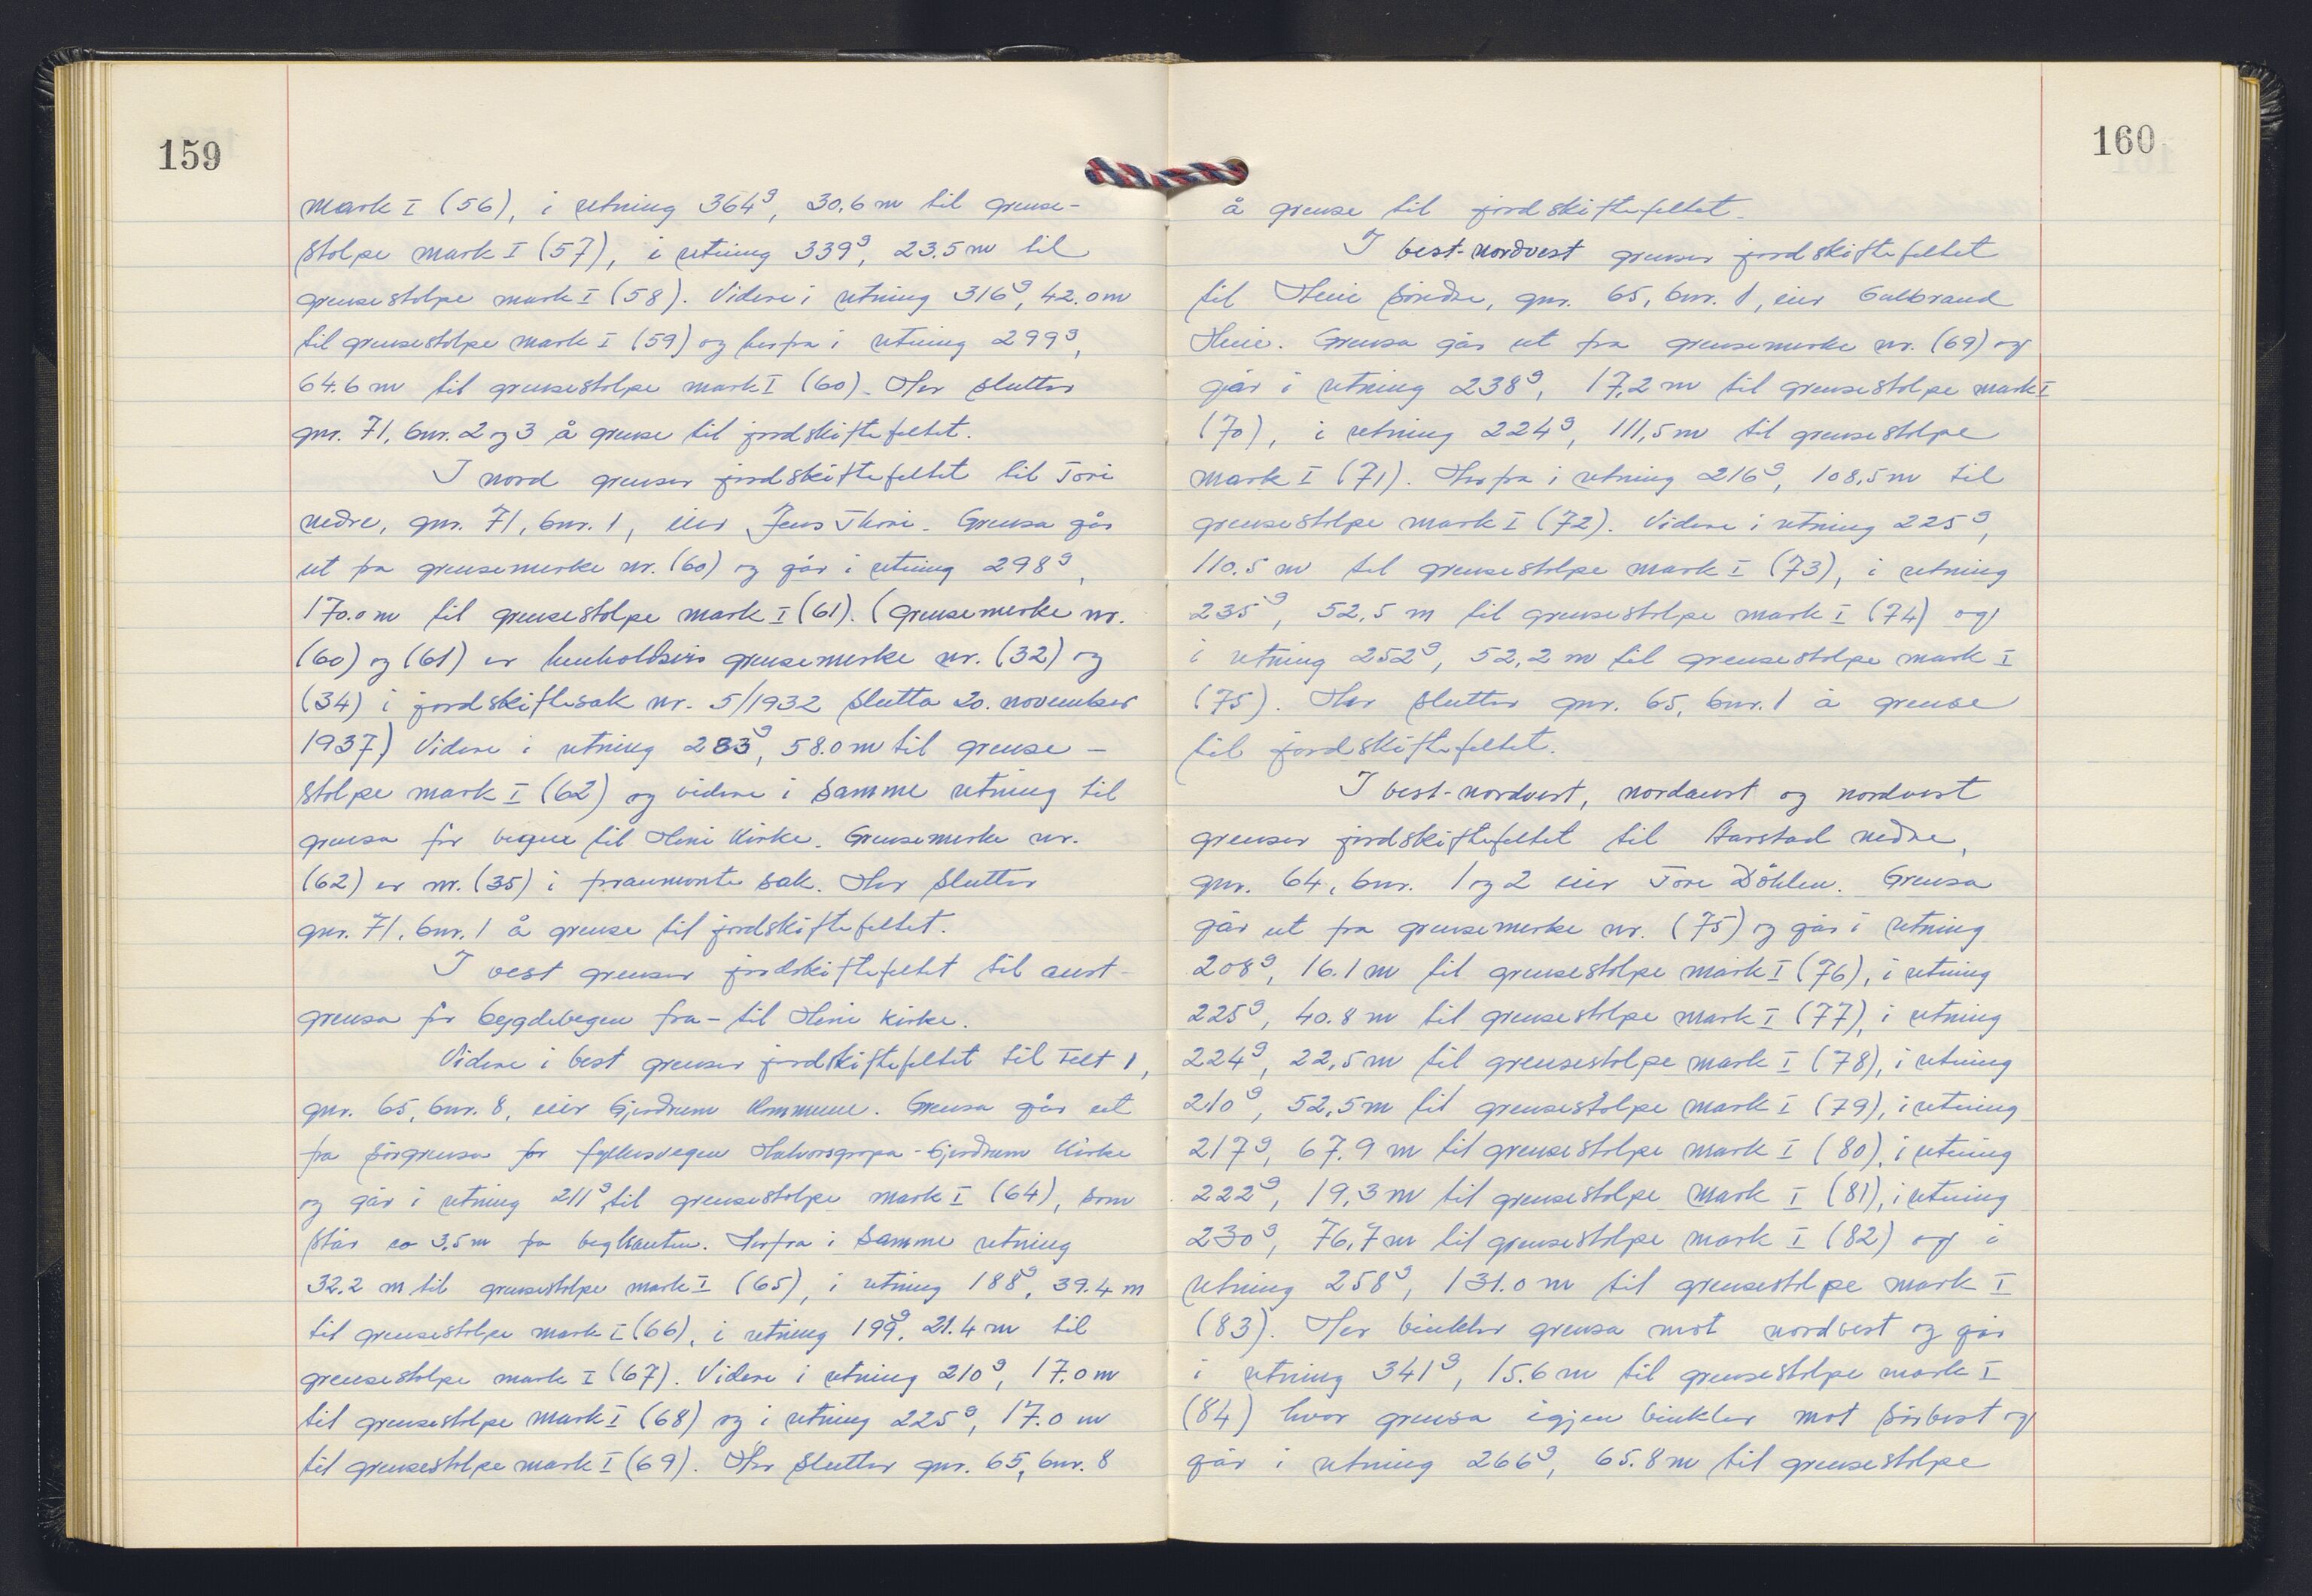 159
mark I (56), i retning 364ᵍ, 30.6 m til grense-
stolpe mark I (57), i retning 339ᵍ, 23.5 m til
grensestolpe mark I (58). Videre i retning 316ᵍ, 42.0 m
til grensestolpe mark I (59) og herfra i retning 299ᵍ,
64.6 m til grensestolpe mark I (60). Her slutter
gnr. 71, bnr. 2 og 3 å grense til jordskiftefeltet.
I nord grenser jordskiftefeltet til Tori
nedre, gnr. 71, bnr. 1, eier Jens Thori. Grensa går
ut fra grensemerke nr. (60) og går i retning 298ᵍ,
170.0 m til grensestolpe mark I (61). (Grensemerke nr.
(60) og (61) er henholdsvis grensemerke nr. (32) og
(34) i jordskiftesak nr. 5/1932 slutta 20. november
1937) Videre i retning 283ᵍ, 58.0 m til grense-
stolpe mark I (62) og videre i samme retning til
grensa for vegen til Heni Kirke. Grensemerke nr.
(62) er nr. (35) i frammante sak. Her slutter
gnr. 71, bnr. 1 å grense til jordskiftefeltet.
I vest grenser jordskiftefeltet til aust-
grensa for bygdevegen fra - til Heni kirke.
Videre i vest grenser jordskiftefeltet til Felt 1,
gnr. 65, bnr. 8, eier Gjerdrum Kommune. Grensa går ut
fra sørgrensa for fylkesvegen Halvorsgropa - Gjerdrum Kirke
og går i retning 211ᵍ, til grensestolpe mark I (64), som
står ca 3,5 m fra vegkanten. Herfra i samme retning
32.2 m til grensestolpe mark I (65), i retning 188ᵍ, 39.4 m
til grensestolpe mark I (66), i retning 199ᵍ, 21.4 m til
grensestolpe mark I (67). Videre i retning 210ᵍ, 17.0 m
til grensestolpe mark I (68) og i retning 225ᵍ, 17.0 m
til grensestolpe mark I (69). Her slutter gnr. 65, bnr. 8
160
å grense til jordskiftefeltet.
I vest-nordvest grenser jordskiftefeltet
til Heni Søndre, gnr. 65, bnr. 1, eier Gulbrand
Heni. Grensa går ut fra grensemerke nr. (69) og
går i retning 238ᵍ, 17,2 m til grensestolpe mark I
(70), i retning 224ᵍ, 111,5 m til grensestolpe
mark I (71). Herfra i retning 216ᵍ, 108,5 m til
grensestolpe mark I (72). Videre i retning 225ᵍ,
110.5 m til grensestolpe mark I (73), i retning
235ᵍ, 52,5 m til grensestolpe mark I (74) og
i retning 252ᵍ, 52,2 m til grensestolpe mark I
(75). Her slutter gnr. 65, bnr. 1 å grense
til jordskiftefeltet.
I vest-nordvest, nordaust og nordvest
grenser jordskiftefeltet til Aarstad nedre,
gnr. 64, bnr. 1 og 2 eier Tore Döhlen. Grensa
går ut fra grensemerke nr. (75) og går i retning
208ᵍ, 16.1 m til grensestolpe mark I (76), i retning
225ᵍ, 40.8 m til grensestolpe mark I (77), i retning
224ᵍ, 22,5 m til grensestolpe mark I (78), i retning
210ᵍ, 52,5 m til grensestolpe mark I (79), i retning
217ᵍ, 67.9 m til grensestolpe mark I (80), i retning
222ᵍ, 19,3 m til grensestolpe mark I (81), i retning
230ᵍ, 76,7 m til grensestolpe mark I (82) og i
retning 258ᵍ, 131.0 m til grensestolpe mark I
(83). Her vinkler grensa mot nordvest og går
i retning 341ᵍ, 15.6 m til grensestolpe mark I
(84) hvor grensa igjen vinkler mot sørvest og
går i retning 266ᵍ, 65.8 m til grensestolpe